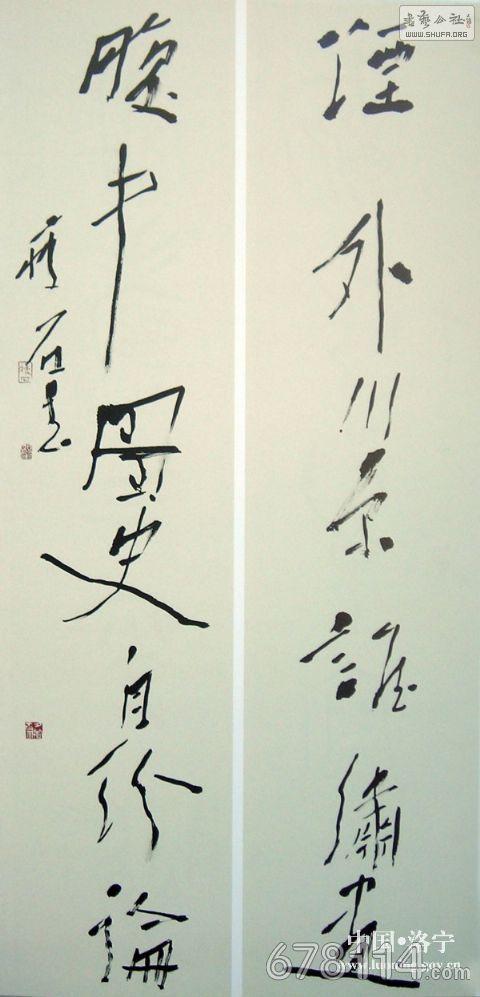 書藝公社
WWW.SHUFA.ORG
煙外川原誰繡畫
腹中圖史自紛論
石書
中国•洛宁
www.luoning.gov.cn
678114.com